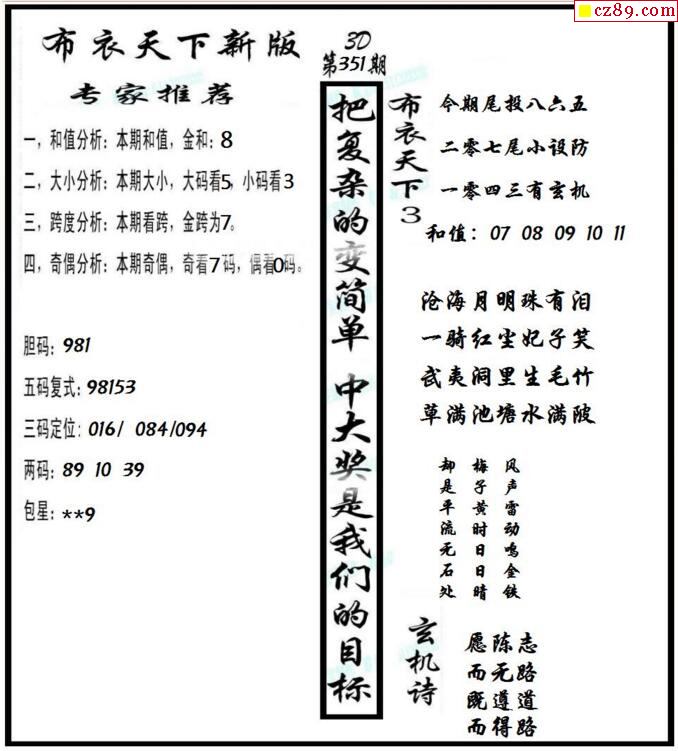 cz89.com
布衣天下新版
专家推荐
一，和值分析：本期和值，金和：8
二，大小分析：本期大小，大码看5，小码看3
三，跨度分析：本期看跨，金跨为7。
四，奇偶分析：本期奇偶，奇看7码，偶看0码。
胆码：981
五码复式：98153
三码定位：016/ 084/094
两码：89 10 39
包星：**9
3D
第351期
把复杂的变简单 中大奖是我们的目标
布衣天下3
今期尾投八六五
二零七尾小设防
一零四三有玄机
和值：07 08 09 10 11
沧海月明珠有泪
一骑红尘妃子笑
武夷洞里生毛竹
草满池塘水满陂
风声雷动鸣金铁
梅子黄时日日晴
却是平流无石处
玄机诗
愿陈志
而无路
既遵道
而得路